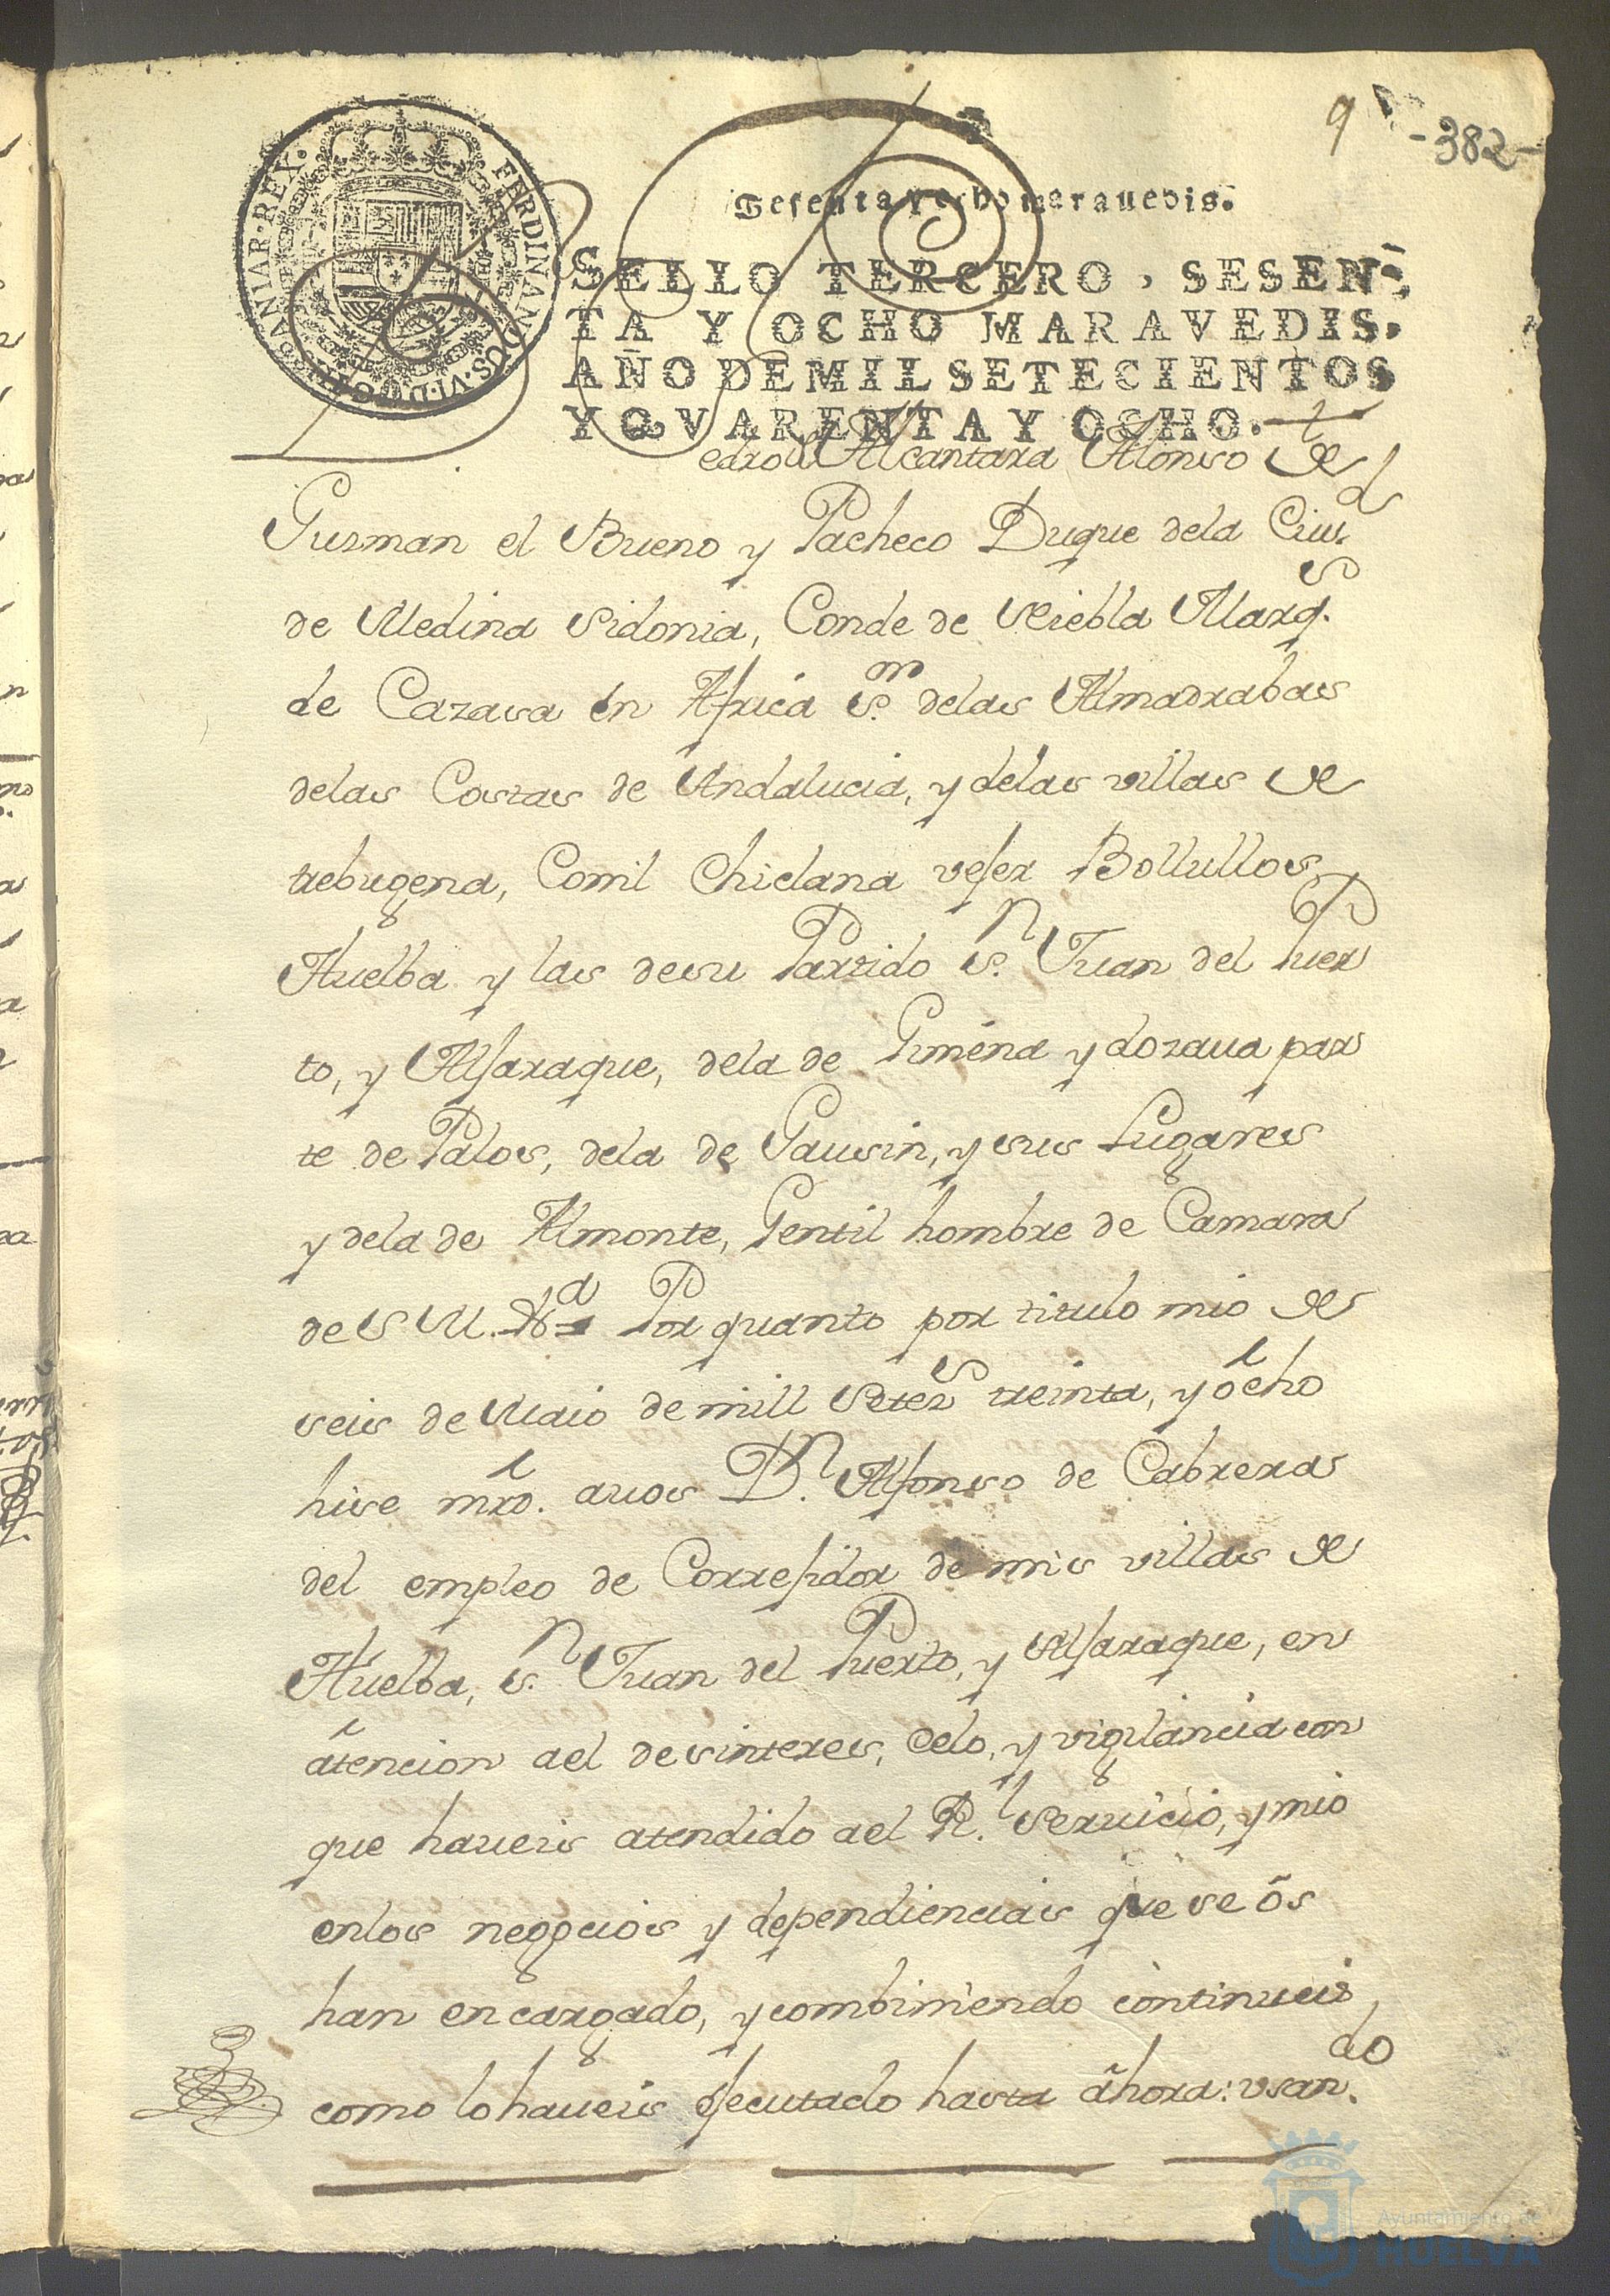 9 -382-
FERDINANDUS·VI·D·G· HISPANIAR·REX·
Sesenta y ocho maravedis.
SELLO TERCERO, SESEN-
TA Y OCHO MARAVEDIS.
AÑO DE MIL SETECIENTOS
Y QVARENTA Y OCHO.
Pedro de Alcantara Alonso de
Gusman el Bueno y Pacheco Duque dela Ciu.d
de Medina Sidonia, Conde de Niebla Marq.s
de Cazasa en Africa S.or delas Almadrabas
delas Costas de Andalucia, y delas villas de
trebugena, Conil Chiclana vejer Bollullos
Huelba y las desu Partido S.n Juan del Puer
to, y Aljaraque, dela de Gimena y dozava par
te de Palos, dela de Gausin, y sus Lugares
y dela de Almonte, Gentil hombre de Camara
de S M. &a Por quanto por titulo mio de
seis de Maio de mill Setezs treinta, y ocho
hise mrd. avos D.n Alfonso de Cabrera
del empleo de Correjidor de mis villas de
Huelba, S.n Juan del Puerto, y Aljaraque, en
atencion ael desinteres, Celo, y vigilancia con
que haveis atendido ael R.l Servicio, y mio
enlos neggocios y dependiencias que se os
han encargado, y combiniendo continueis,
como lo haveis ejecutado hasta ahora: usan.do
Ayuntamiento de
HUELVA